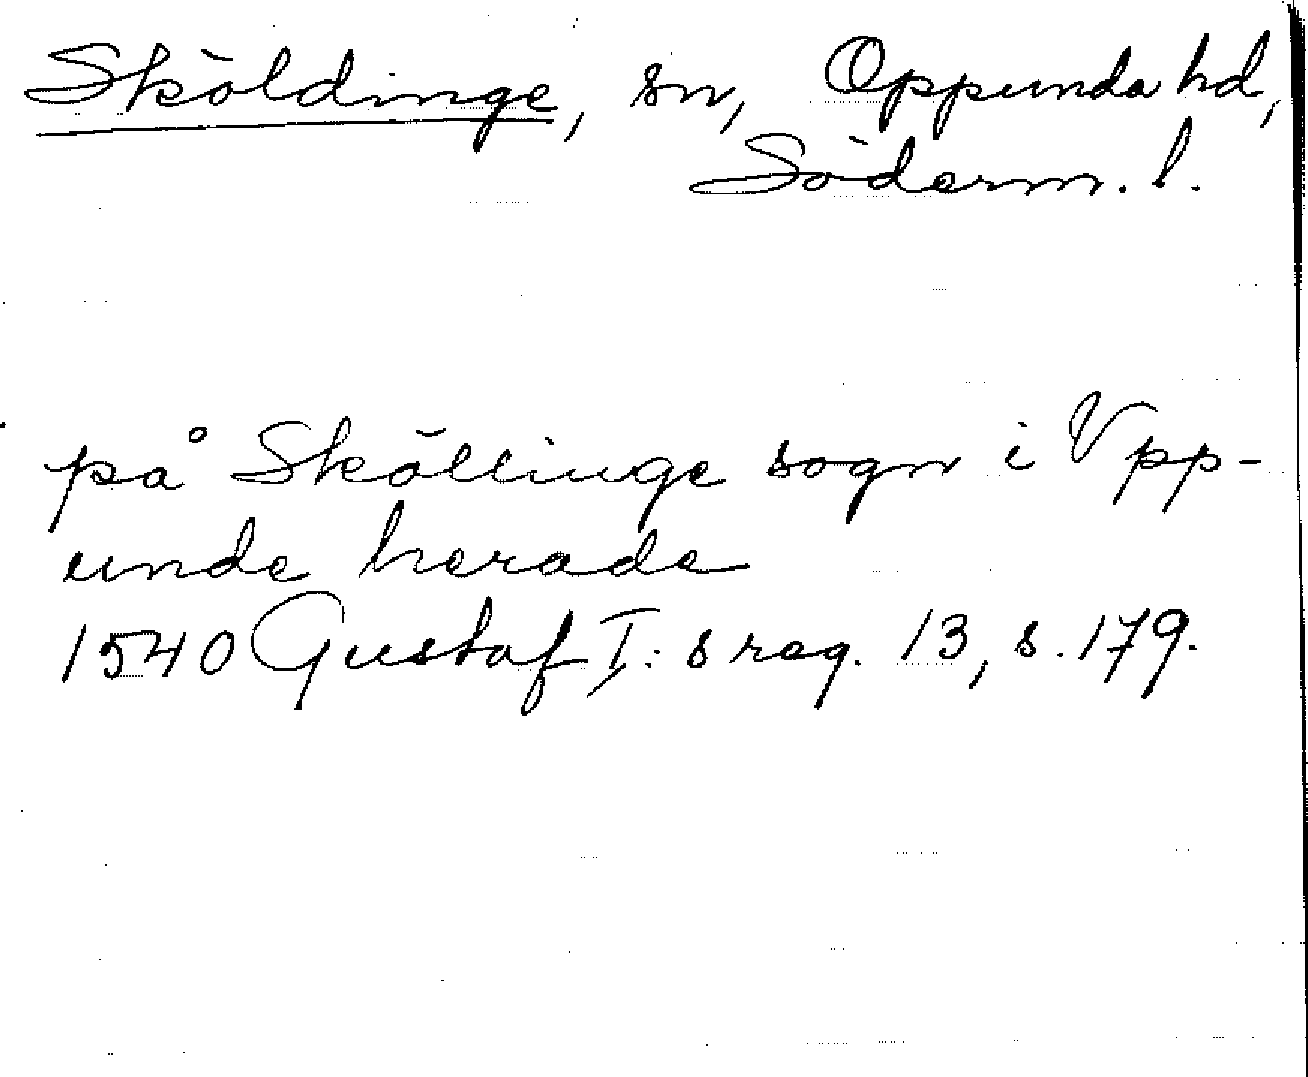 Sköldinge, sn, Oppunda hd,
Söderm. l.
på Sköllinge sogn i Vpp-
unde herade
1540 Gustaf I: s reg. 13, s. 179.